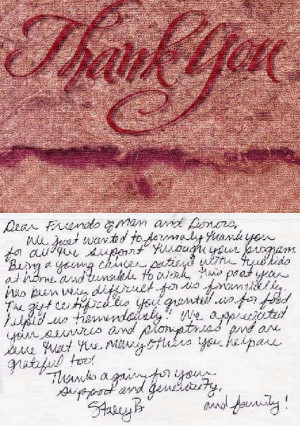 Thank You
Dear Friends of Man and Donors,
We just wanted to formally thank you
for all the support through your program
Being a young cancer patient with two kids
at home and unable to work this past year
has been very difficult for us financially.
The gift certificates you granted us for food
helped us tremendously! We appreciated
your services and promptness and are
sure that the many others you help are
grateful too!
Thanks again for your
support and generosity,
Stacey B and family!